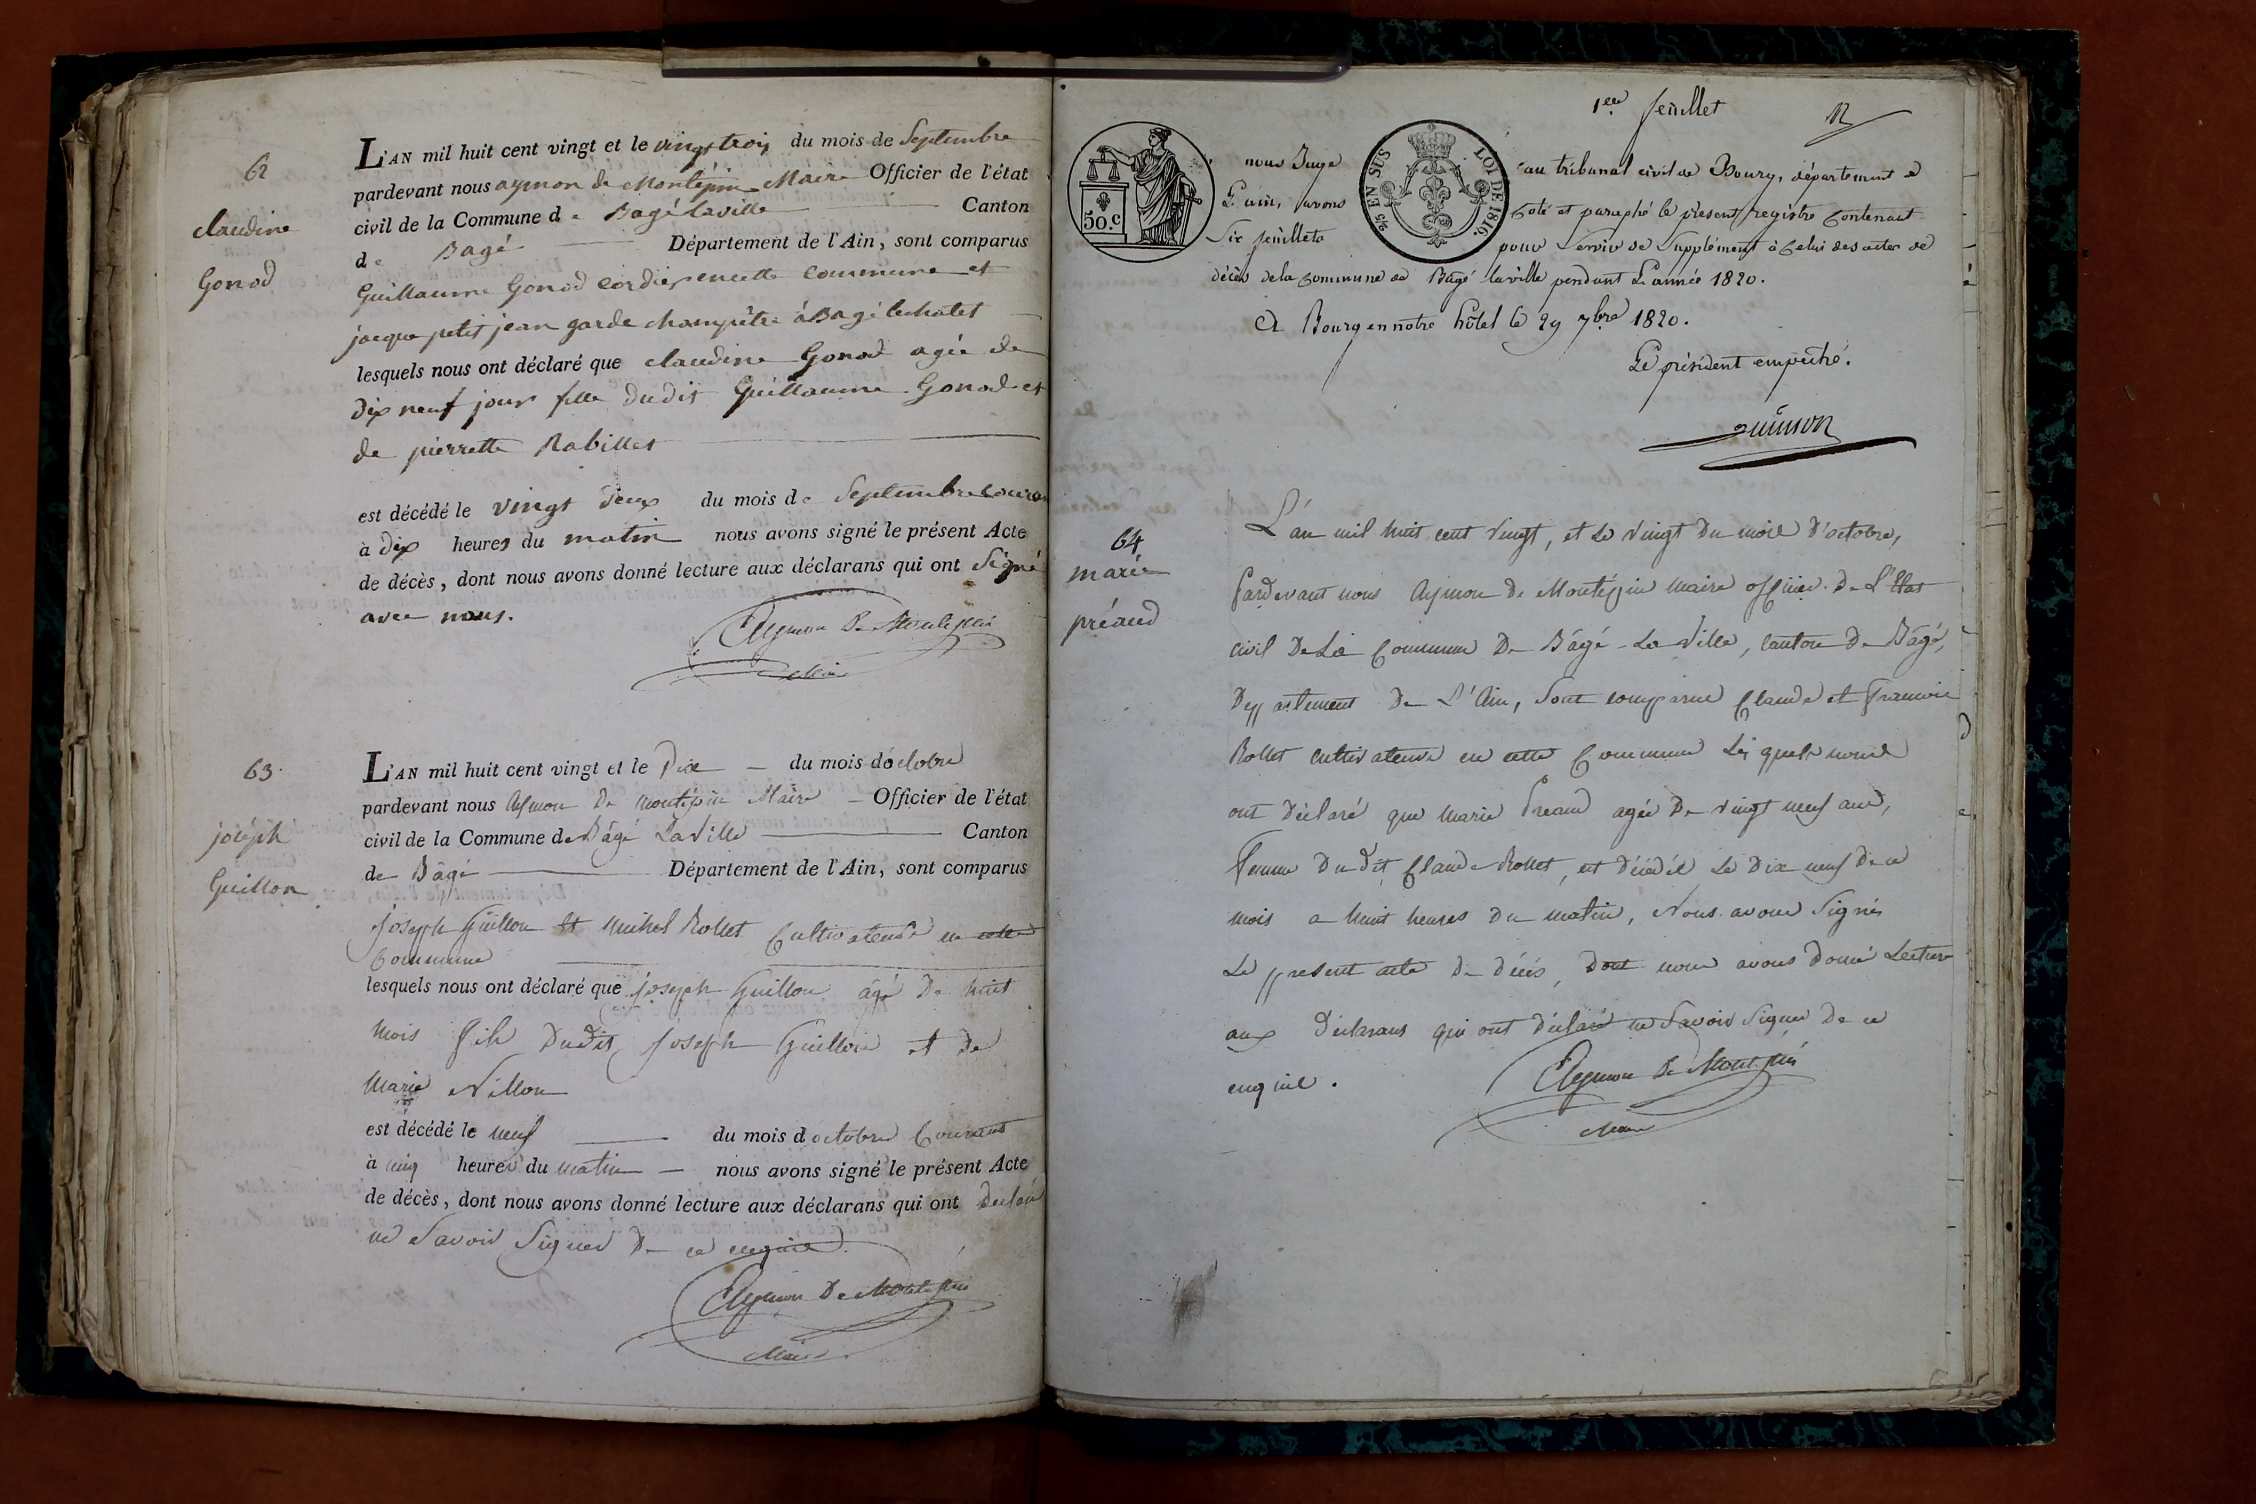 62
claudine
Gonod
L'AN mil huit cent vingt et le vingt trois du mois de Septembre
pardevant nous aymon de Montépin Maire Officier de l'état
civil de la Commune de Bagé laville Canton
de Bagé Département de l'Ain, sont comparus
Guillaume Gonod cordier en cette commune et
jacque petit jean garde champêtre à Bagé lechatel
lesquels nous ont déclaré que claudine Gonod agée de
dix neuf jour fille dudit Guillaume Gonod et
de pierrette Rabillet
est décédé le vingt deux du mois de Septembre couran
à dix heures du matin nous avons signé le présent Acte
de décès, dont nous avons donné lecture aux déclarans qui ont Signé
avec nous.
Aymon De Montepin
Maire
63.
joseph
Guillon
L'AN mil huit cent vingt et le Dix du mois d'octobre
pardevant nous Aymon De montépin Maire Officier de l'état
civil de la Commune de Bâgé La Ville Canton
de Bâgé Département de l'Ain, sont comparus
joseph Guillon Et Michel Rollet Cultivateurs en cette
Commune
lesquels nous ont déclaré que joseph Guillon âgé De huit
mois fils Dudit joseph Guillon et De
Marie Nillon
est décédé le neuf du mois d octobre Courant
à cinq heures du matin nous avons signé le présent Acte
de décès, dont nous avons donné lecture aux déclarans qui ont declaré
ne Savoir Signer De ce enquis
Aymon De Montepin
Maire
1er feuillet
50.c
2/5 EN SUS LOI DE 1816.
nous Juge au tribunal civil de Bourg, département de
L'ain, avons Coté et paraphé le présent registre Contenant
Six feuillets pour Servir de Supplément à Celui des actes de
décès de la Commune de Bâgé laville pendant L'année 1820.
A Bourg en notre hôtel le 29 7bre 1820.
Le président empêché.
64
marie
préaud
L'an mil huit cent vingt, et Le vingt Du mois D'octobre,
Pardevant nous Aymon De Montépin Maire officier De L'Etat
civil De La Commune De Bâgé-La Ville, canton De Bâgé,
Departement De L'Ain, Sont comparus Claude et Francois
Rollet cultivateurs en cette Commune Lesquels nous
ont Déclaré que Marie Preaud agée De vingt neuf ans,
femme Du Dit Claude Rollet, est Décédée Le Dix neuf De ce
mois a huit heures Du matin, Nous avons Signés
Le present acte De Décès, Dont nous avons Donné Lecture
aux Déclarans qui ont Déclaré ne Savoir Signer De ce
enquis.
Aymon De Montepin
Maire